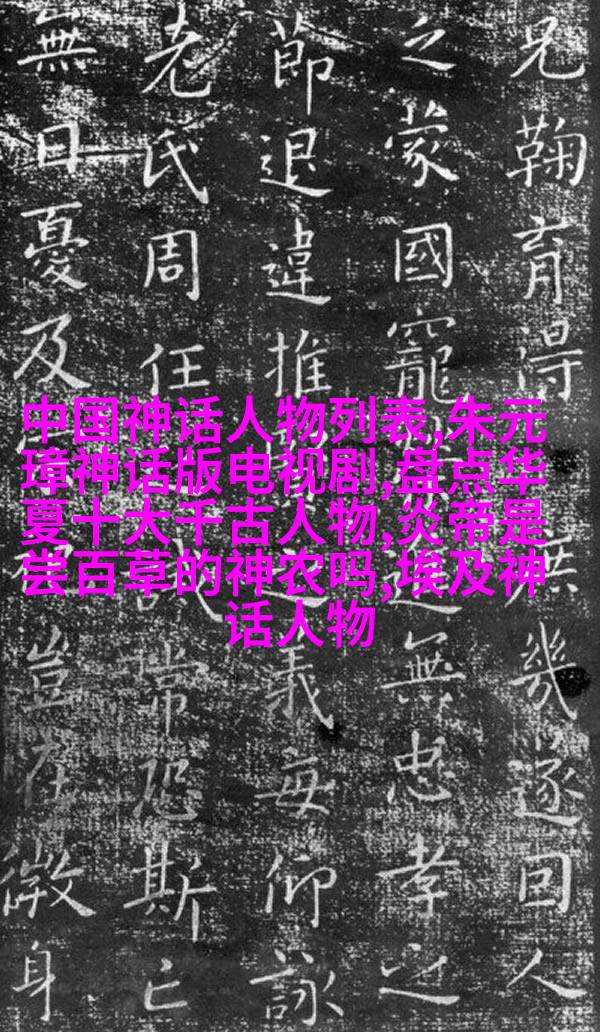 兄鞠育得無幾遂回人
之蒙國寵無忠孝之
節退違推之義每仰詠
老氏周任常恐斯亡
無日憂及豈在微身
中国神话人物列表,朱元
璋神话版电视剧,盘点华
夏十大千古人物,炎帝是
尝百草的神农吗,埃及神
话人物